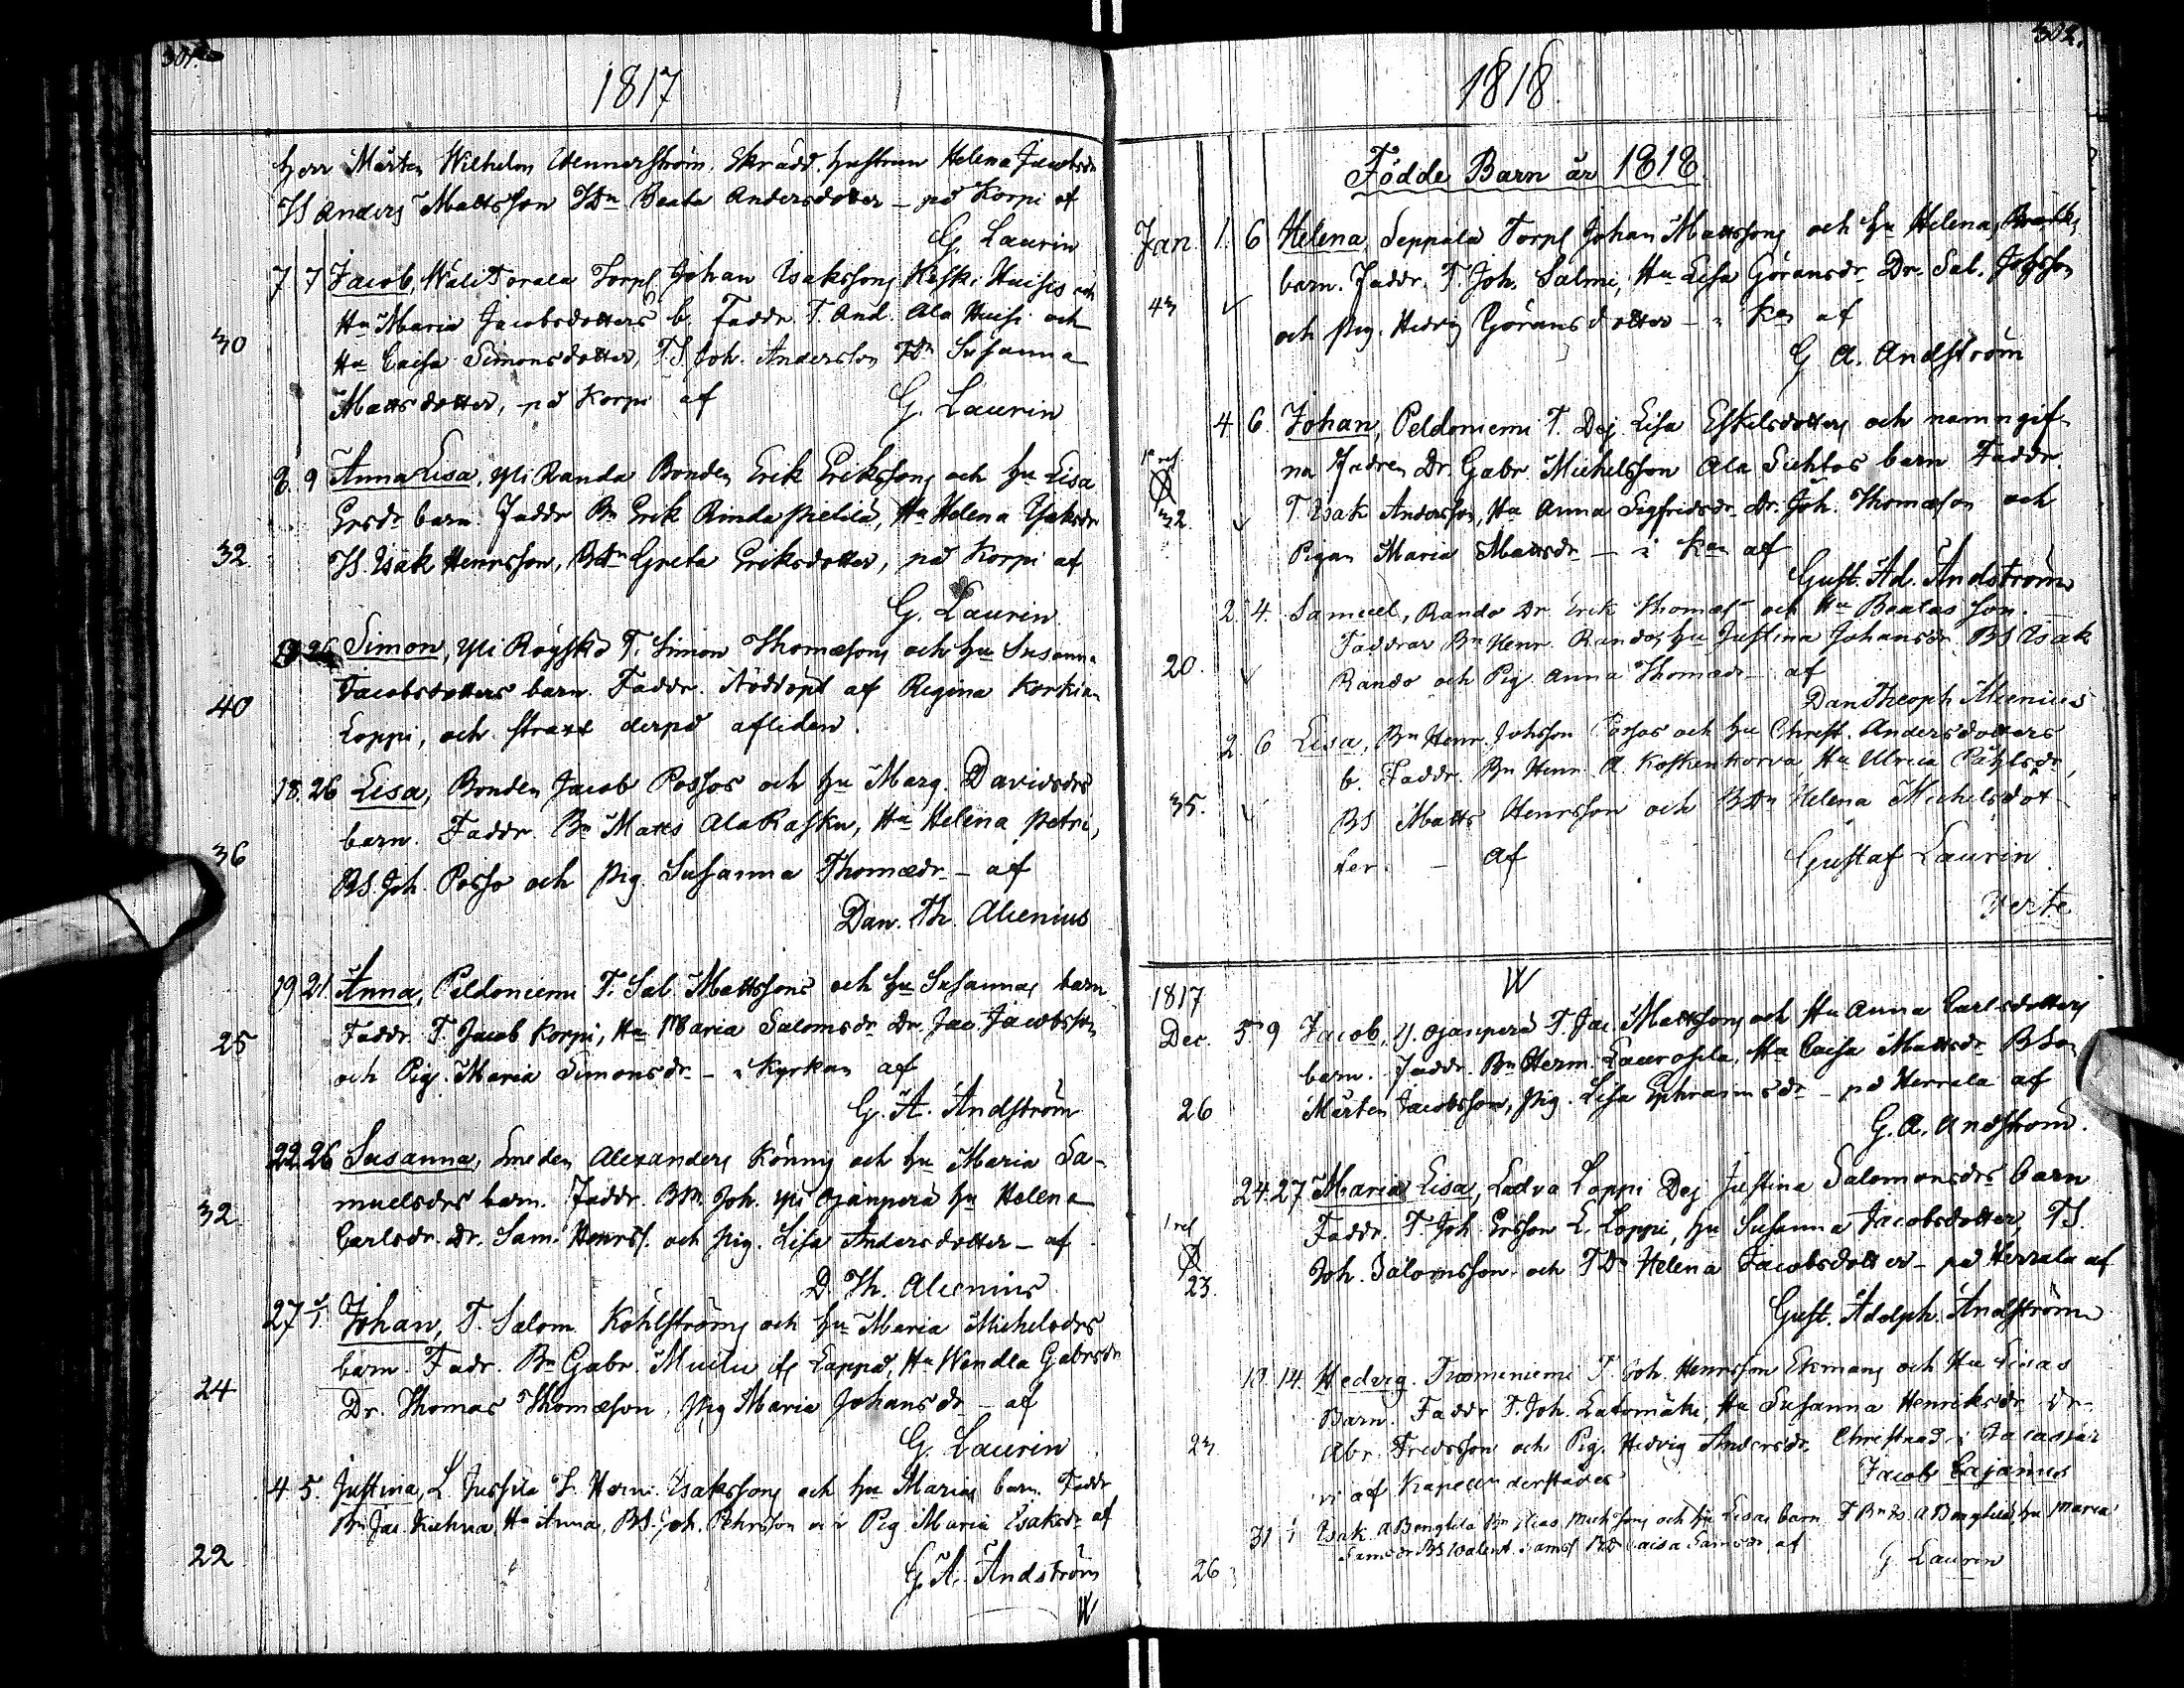 301.
1817
Herr Mårten Wilhelm Wennerström, Skrädd. hustrun Helena Jacobsdr
TS Anders Mattsson TDn Beata Andersdotter – på Korpi af
G. Laurin
7 7 Jacob, Wäli Torala Torp. Johan Isakssons Keski Huisis och
Hu Maria Jacobsdotters b. Faddr. T. And. Ala Huisi och
30
Hu Caisa Simonsdotter, T.S. Joh. Andersson TDn Susanna
Mattsdotter, på Korpi af G. Laurin
8. 9 Anna Lisa, Yli Randa Bonden Erik Erikssons och hu Lisa
Ersdr barn. Faddr Bn Erik Rinda Pietilä, Hu Helena Isaksdr
32
TS. Isak Henrsson, BDn Greta Eriksdotter, på Korpi af
G. Laurin
26 Simon, Yli Röyskö T. Simon Thomæsons och hu Susanna
Jacobsdotters barn. Faddr. Nöddöpt af Regina Korkia
40
Loppi, och straxt derpå afliden.
18. 26 Lisa, Bonden Jacob Possos och hu Marg. Davidsdrs
barn. Faddr. Bn Matts Ala Rasku, Hu Helena Petri,
36
BS. Joh. Posso och Pig. Susanna Thomædr – af
Dan. Th. Alcenius
19 21 Anna, Peldoniemi T. Sal. Mattssons och hu Susannas barn
Faddr. T. Jacob Korpi, Hu Maria Salomsdr Dr. Jac. Jacobsson
25
och Pig. Maria Simonsdr – i Kyrkan af
G. A. Andström
22. 26 Susanna, Smeden Alexanders Könnys och hu Maria Sa-
muelsdrs barn. Faddr. Bn Joh. Yli Ojanperä hu Helena
32
Carlsdr. Dr. Sam. Henrss. och Pig. Lisa Andersdotter – af
D. Th. Alcenius
27 Johan, T. Salom. Kohlströms och hu Maria Michelsdrs
barn. Fadr. Bn Gabr. Muilu if. Lappo, Hu Wendla Gabrsdr
24
Dr. Thomas Thomæson, Pig Maria Johansdr – af
G. Laurin
4 5. Justina, L. Jussila T. Herm. Isakssons och hu Marias barn. Faddr
Bn Jac. Kiehna, Hu Anna, BS. Joh. Pehrsson och Pig Maria Isaksdr af
22
G. A. Andström
W
302.
1818
Födde Barn år 1818.
Jan. 1. 6 Helena, Seppälä Torp Johan Mattssons och hu Helena
barn. Faddr. T. Joh. Salmi, Hu Lisa Göransdr. Dr. Sal. Johsson
43
och pig. Hedvig Göransdotter – i Kan af
G A. Andström
4 6. Johan, Peldoniemi T. Dej. Lisa Eskelsdotters och namngif-
na Fadren Dr. Gabr. Michelsson Ala Sichtos barn Faddr
32. T. Isak Andersson, Hu Anna Sigfridsdr. Dr. Joh. Thomæson och
Pigan Maria Mattsdr – i Kan af
Gust. Ad. Andström
2. 4. Samuel, Rando Dr Erik Thomæs. och Hu Beatas son.
Faddrar Bn Henr. Randos hu Justina Johansdr. BS Isak
20.
Rando och Pig. Anna Thomædr – af
Dan Theoph Alcenius
2. 6 Lisa, Bn Henr. Johsson Possos och hu Christ. Andersdotters
b. Faddr. Bn Henr. A. Koskenkorva, Hu Ulrica Pählsdr,
35.
BS Matts Henrsson och BDn Helena Michelsdot-
ter. – Af Gustaf Laurin
Verte
W
1817
Dec. 5. 9 Jacob, Y. Ojanperä T. Jac. Mattssons och Hu Anna Carlsdotters
barn. Faddr. Bn Herm. Laurosela, Hu Caisa Mattsdr BSon
26
Mårten Jacobsson, Pig. Lisa Ephraimsdr – på Herrala af
G. A. Andström.
24. 27 Maria Lisa, Ladva Loppi Dej Justina Salomonsdrs barn
Faddr. T. Joh Ersson L. Loppi, hu Susanna Jacobsdotter, TS.
23.
Joh. Salomsson och TDn Helena Jacobsdotter – på Herrala af
Gust. Adolph. Andström
13. 14. Hedvig. T. Joh. Henrsson Ekmans och Hu Lisas
Barn. Faddr T. Joh. Latomäki, Hu Susanna Henriksdr. Dr.
23
Abr. Fredsson och Pig. Hedvig Andersdr. Christnad i Jalasjär
vi af Kapelln derstädes Jacob Cajanus
31 1 Isak A Bengtila Bn Elias Michssons och hu Lisas barn F Bn Is. A Bengtila, hu Maria
Samsdr BS Valent. Samss BD Caisa Samsdr, af
26
G Laurin